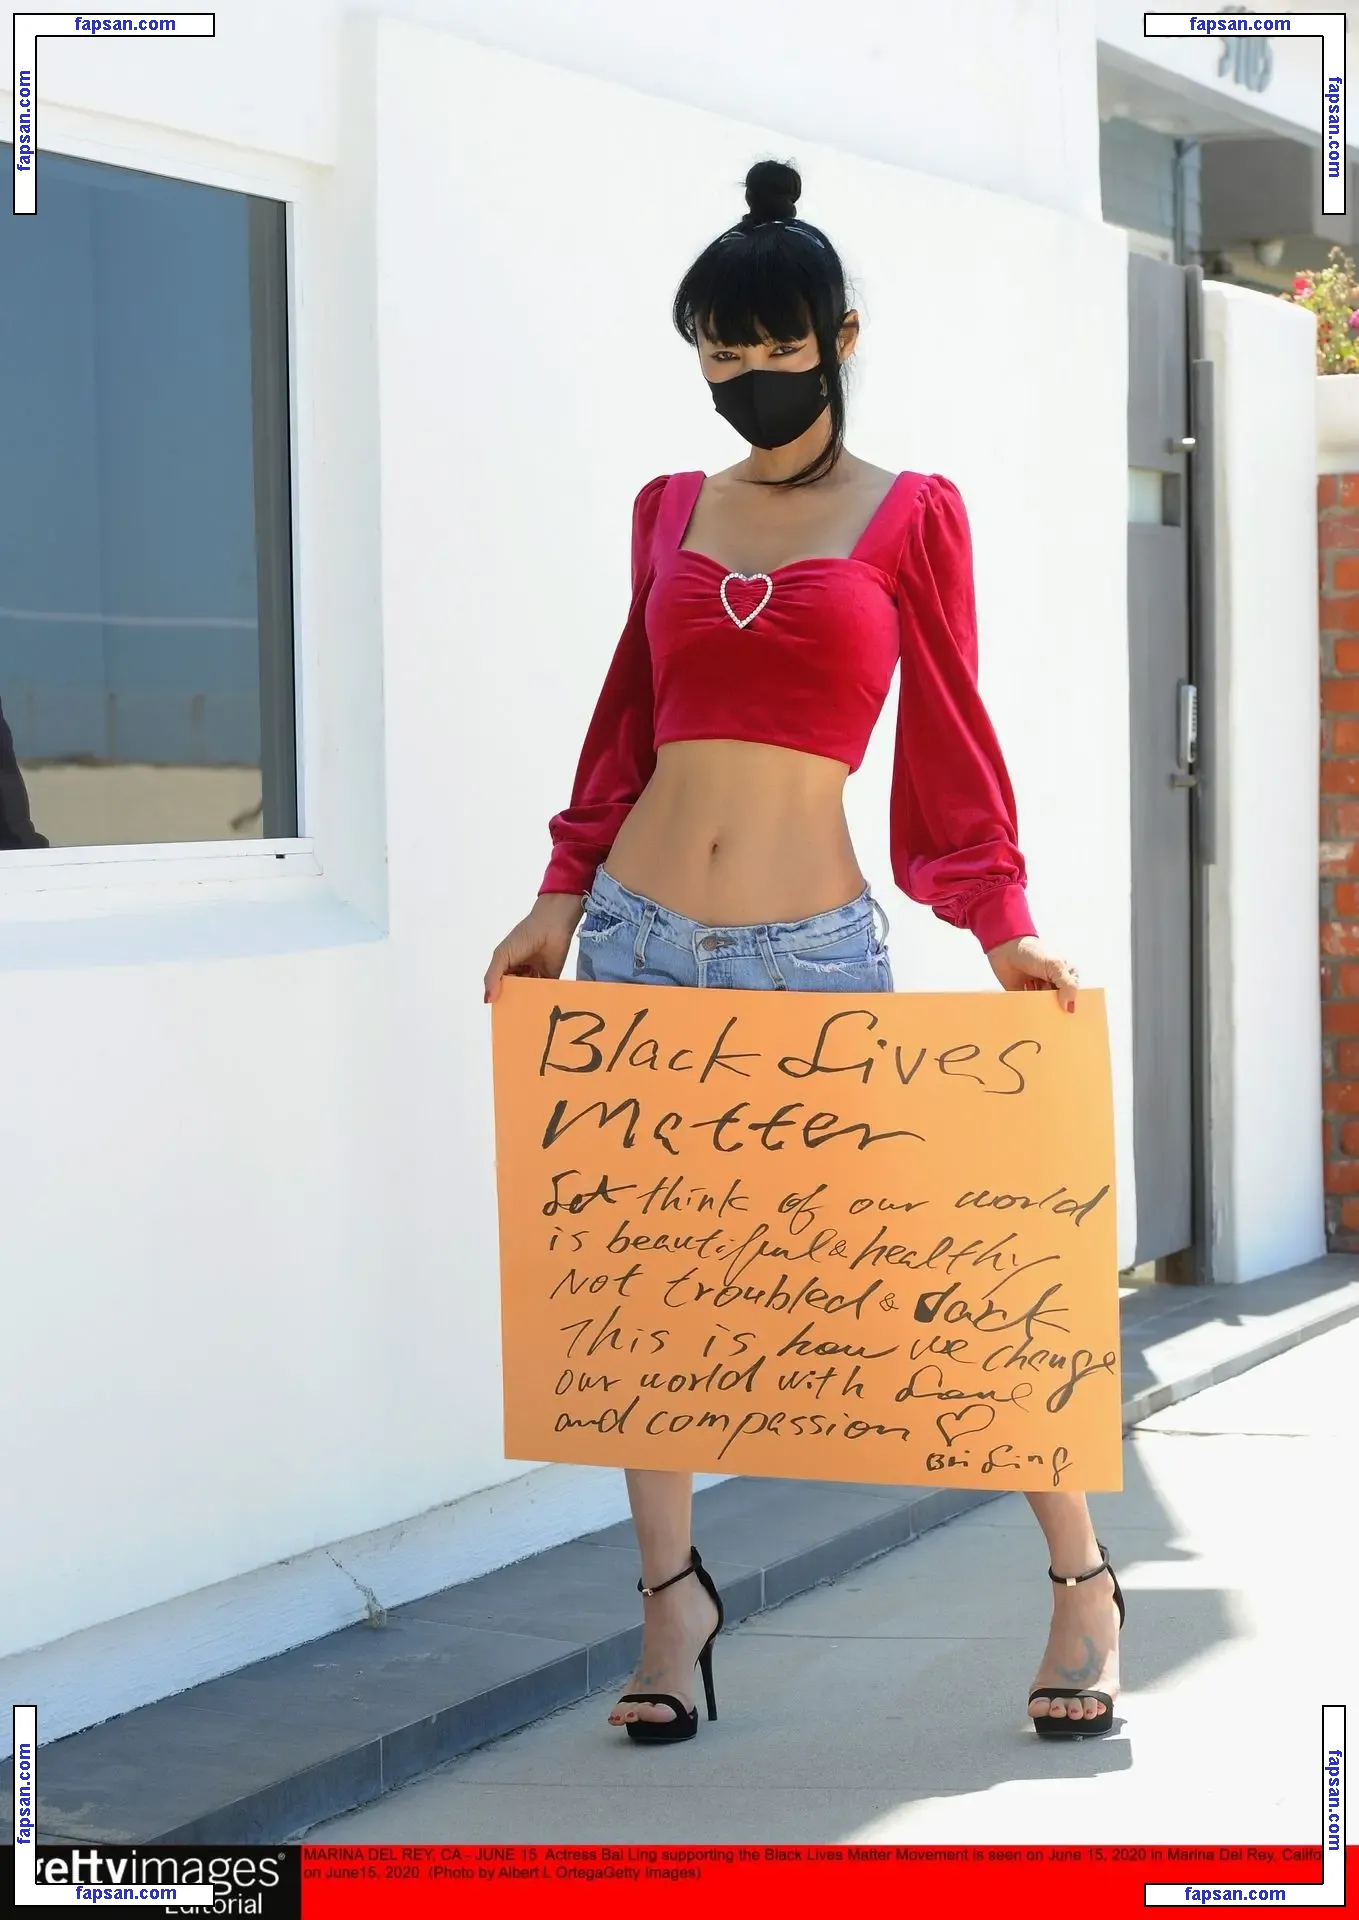 fapsan.com
fapsan.com
fapsan.com
fapsan.com
Black Lives
Matter
Let think of our world
is beautiful & healthy
Not troubled & dark
This is how we change
our world with Love
and compassion ♡
Bai Ling
fapsan.com
fapsan.com
gettyimages®
Editorial
MARINA DEL REY, CA - JUNE 15 Actress Bai Ling supporting the Black Lives Matter Movement is seen on June 15, 2020 in Marina Del Rey, Califo
on June15, 2020 (Photo by Albert L OrtegaGetty Images)
fapsan.com
fapsan.com